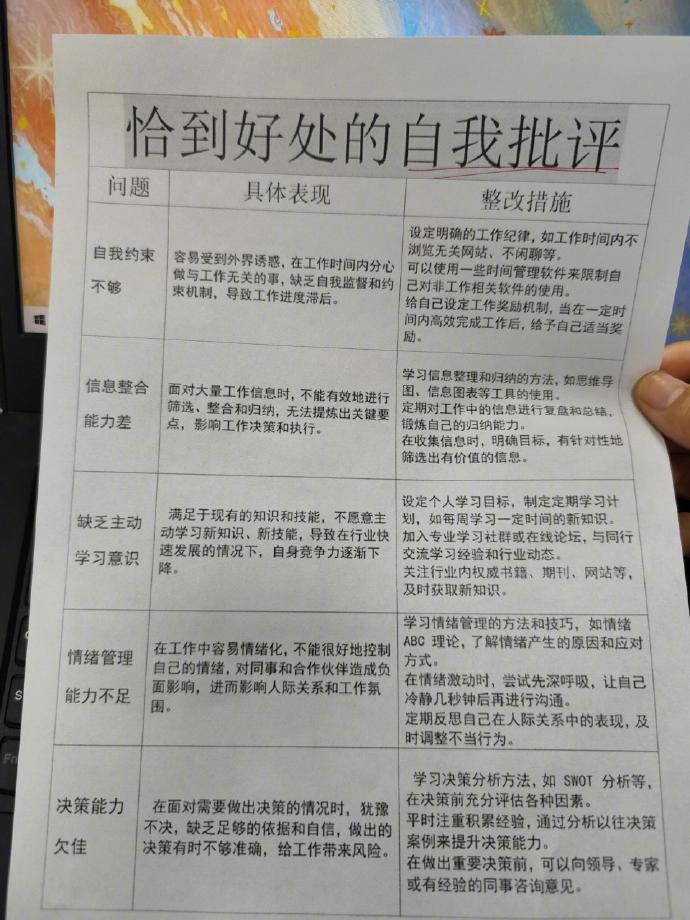 恰到好处的自我批评
问题
具体表现
整改措施
自我约束
不够
容易受到外界诱惑，在工作时间内分心
做与工作无关的事，缺乏自我监督和约
束机制，导致工作进度滞后。
设定明确的工作纪律，如工作时间内不
浏览无关网站、不闲聊等。
可以使用一些时间管理软件来限制自
己对非工作相关软件的使用。
给自己设定工作奖励机制，当在一定时
间内高效完成工作后，给予自己适当奖
励。
信息整合
能力差
面对大量工作信息时，不能有效地进行
筛选、整合和归纳，无法提炼出关键要
点，影响工作决策和执行。
学习信息整理和归纳的方法，如思维导
图、信息图表等工具的使用。
定期对工作中的信息进行复盘和总结，
锻炼自己的归纳能力。
在收集信息时，明确目标，有针对性地
筛选出有价值的信息。
缺乏主动
学习意识
满足于现有的知识和技能，不愿意主
动学习新知识、新技能，导致在行业快
速发展的情况下，自身竞争力逐渐下
降。
设定个人学习目标，制定定期学习计
划，如每周学习一定时间的新知识。
加入专业学习社群或在线论坛，与同行
交流学习经验和行业动态。
关注行业内权威书籍、期刊、网站等，
及时获取新知识。
情绪管理
能力不足
在工作中容易情绪化，不能很好地控制
自己的情绪，对同事和合作伙伴造成负
面影响，进而影响人际关系和工作氛
围。
学习情绪管理的方法和技巧，如情绪
ABC 理论，了解情绪产生的原因和应对
方式。
在情绪激动时，尝试先深呼吸，让自己
冷静几秒钟后再进行沟通。
定期反思自己在人际关系中的表现，及
时调整不当行为。
决策能力
欠佳
在面对需要做出决策的情况时，犹豫
不决，缺乏足够的依据和自信，做出的
决策有时不够准确，给工作带来风险。
学习决策分析方法，如 SWOT 分析等，
在决策前充分评估各种因素。
平时注重积累经验，通过分析以往决策
案例来提升决策能力。
在做出重要决策前，可以向领导、专家
或有经验的同事咨询意见。
Fn